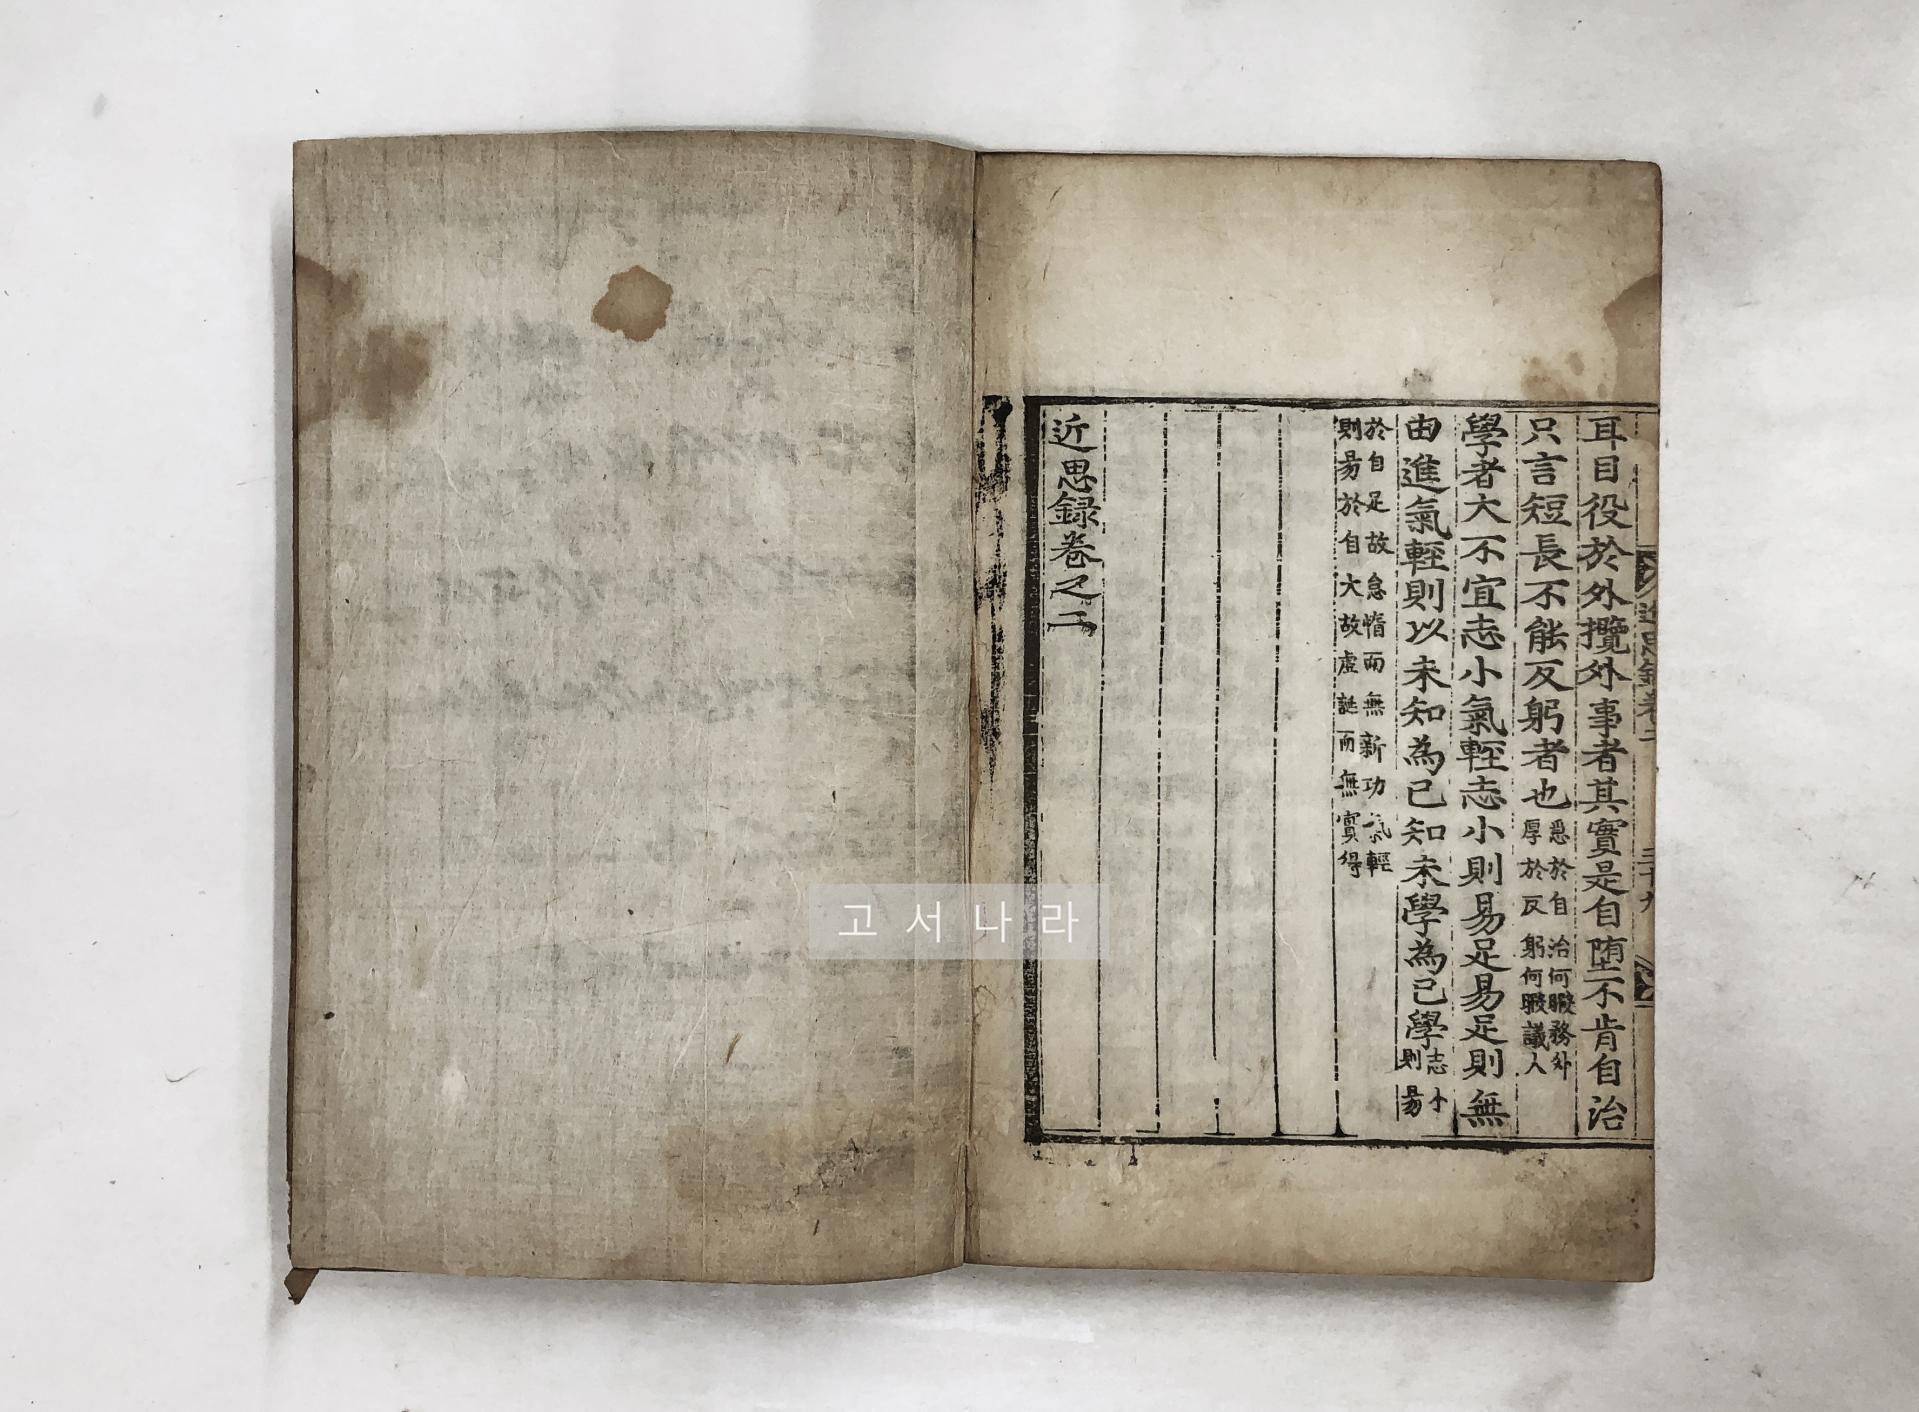 耳目役於外攬外事者其實是自墮不肯自治
只言短長不能反躬者也 急於自治何暇務外 厚於反躬何暇議人
學者大不宜志小氣輕志小則易足易足則無
由進氣輕則以未知為已知未學為已學 志小 則易
於自足故怠惰而無新功氣輕
則易於自大故虛誕而無實得
近思錄卷之二
近思錄卷二
三十九
고서나라